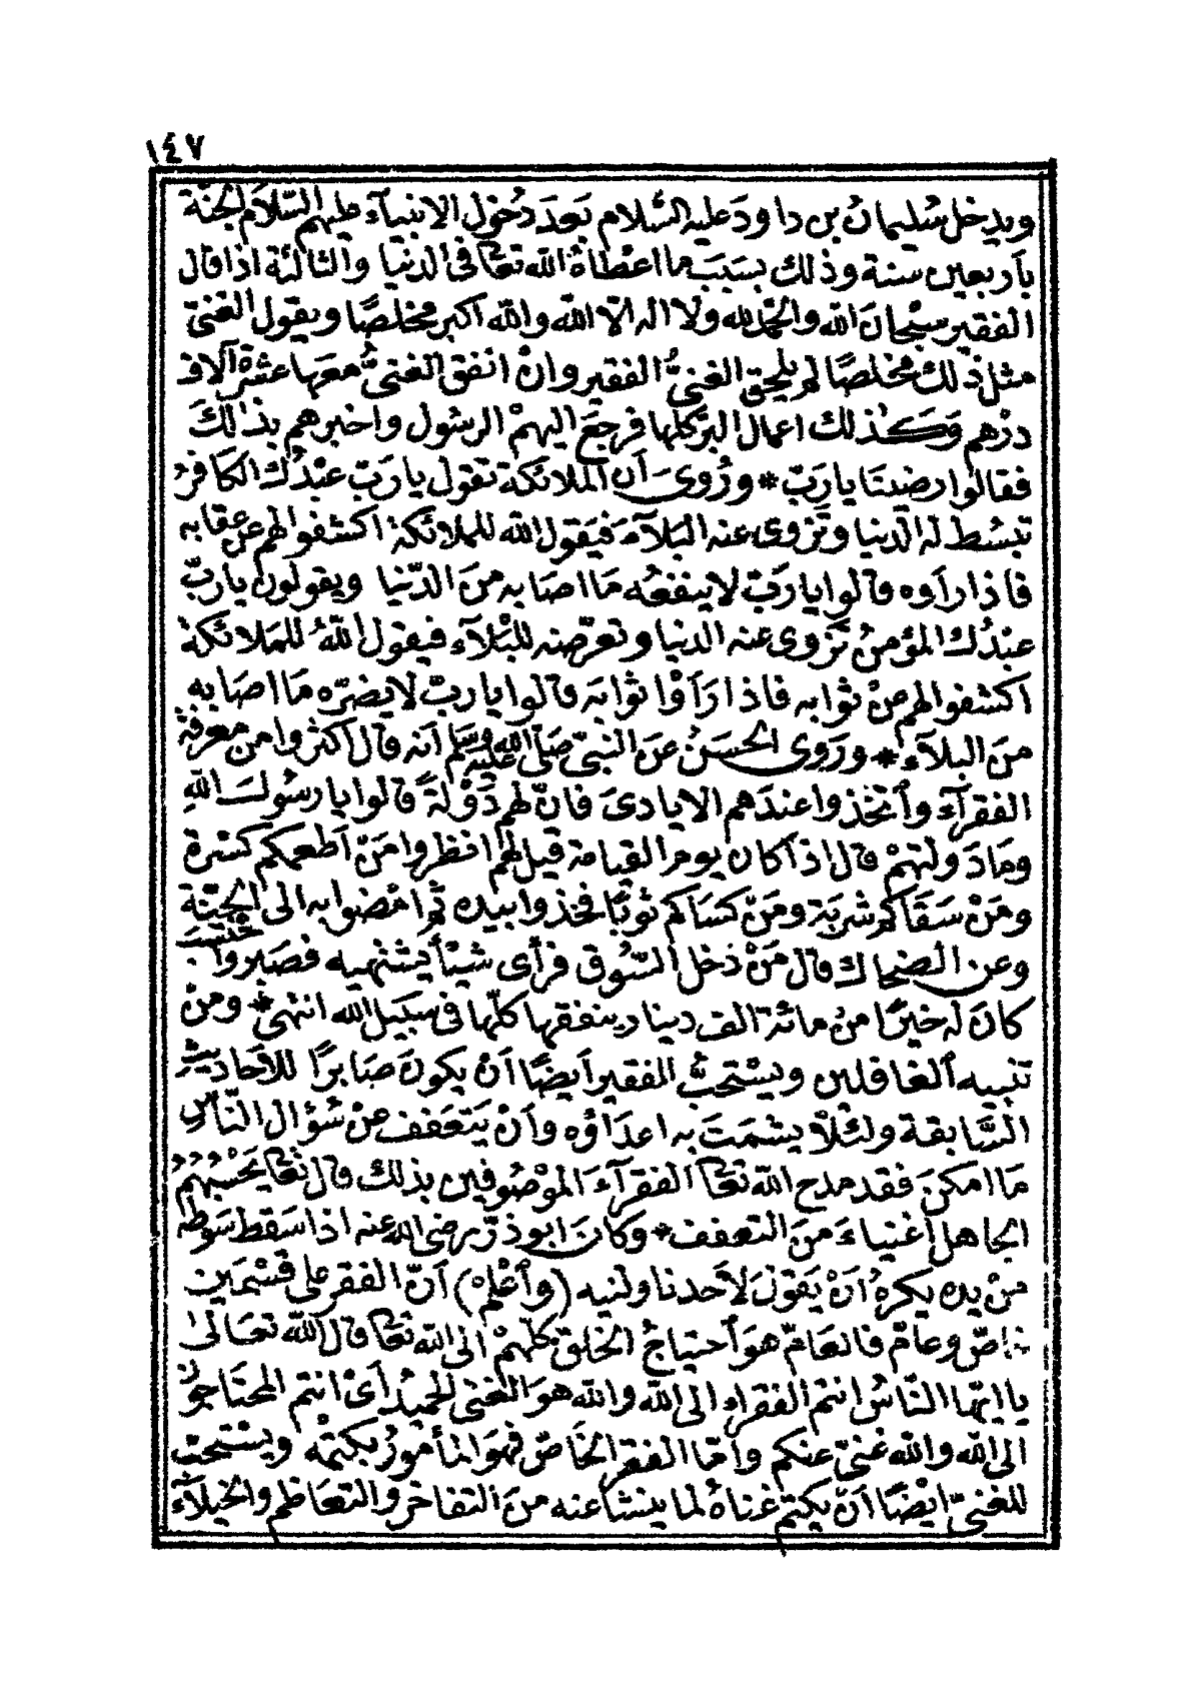 ١٤٧
ويدخل سُليمانُ بن داودَ عليه السَّلام بَعدَ دُخول الانبيآء عليهم السَّلام الجنَّة
بأربعين سنة وذلك بسَبَب ما اعْطاهُ الله تعَا في الدنيا والثالثة اذا قال
الفقير سبْحَانَ الله والحَمْد لله ولا اله الا الله والله اكبر مخلصًا ويقول الغنيّ
مثل ذلك مُخلصًا لم يلحق الغنيُّ الفقير وانْ انفق الغنيُّ معَها عشْرة آلاف
درْهم وَكذلك اعمال البرّ كلها فرجعَ اليهمْ الرسُول واخبرهم بذٰلكَ
فقالوا رضينَا يا رَبّ * ورُوىَ أن الملائكة تقول يا رَبّ عبْدُك الكافرُ
تبسُط له الدّنيا وتَزوى عنه البَلآءَ فيَقول الله للملائكة اكشفوا لهم عن عقابه
فاذا رأوه قالوا يا رَبّ لا ينفعُه مَا اصَابه منَ الدّنيا ويقولون يا ربّ
عبْدُك المؤمنُ تَزوى عنه الدنيا وتعرّضه للبْلآء فيقول اللهُ للمَلائكة
اكشفوا لهم عنْ ثوابه فاذا رَأوْا ثوابَه قالوا يا ربّ لا يضرّه مَا اصَابه
منَ البلآء * ورَوى الحسَنُ عنَ النبىّ صَلّى الله عليْه وسَلم أنه قال اكثرُوا من معرفة
الفقرآء وأتّخذوا عندَهم الايادىَ فانّ لهم دَوْلةً قالوا يا رسُولَ الله
ومَا دَولتهمْ قال اذا كان يوم القيامة قيل لهم انظروا مَنْ أطعمكم كسْرة
ومَنْ سَقَاكم شربَة ومَنْ كسَاكم ثوبًا فخذوا بيده ثمّ امْضوا به الى الجنّة
وعن الضحاك قال مَنْ دَخل السّوق فرأى شيْأ يشتْهيه فصَبر واحْتسَبَ
كانَ له خيرًا منْ مائة الف دينار ينفقها كلّها فى سَبيل الله انتهى * ومنْ
تنبيه الغافلين ويسْتحبُّ للفقير أيضًا أنْ يكونَ صَابرًا للأحاديث
السَّابقة ولئلّا يشمَتَ به اعدَاؤه وأنْ يَتعَفف عنْ سُؤال النّاس
مَا امكنَ فقد مدح الله تعَا الفقرآءَ الموْصُوفين بذلك قال تعَا يَحْسبُهُمُ
الجاهل أغنيَاءَ منَ التعفف * وكانَ ابو ذرّ رضى الله عنه اذا سَقط سَوطه
منْ يده يكرهُ أنْ يَقولَ لأحد ناولنيه (وأعْلم) أنّ الفقر على قسْمَين
خاصّ وعامّ فالعَامّ هوَ أحتياجُ الخلق كلّهمْ الى الله تعَا قال اللهُ تعَالىٰ
يا ايّها النّاسُ انتم الفقراء الى الله والله هوَ الغنى الحميدُ أىْ انتم المحتَاجون
الى الله والله غنىّ عنكم وأمّا الفقر الخاصّ فهوَ المأمورُ بكتمْه ويسْتحبّ
للغنىّ ايْضًا أنْ يكتمَ غناهُ لما ينشأ عنه منَ التفاخر والتعَاظم والخيلآء